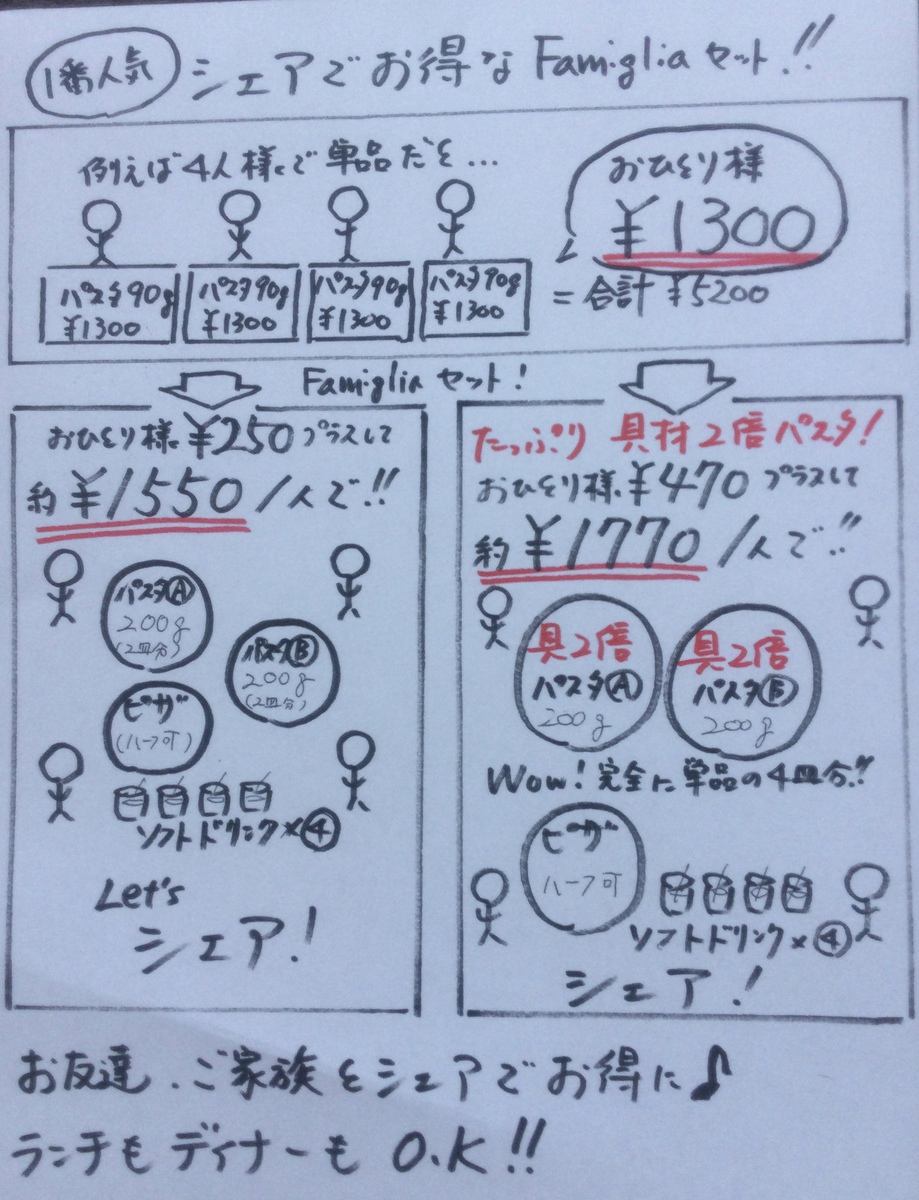 1番人気
シェアでお得なFamigliaセット!!
例えば4人様で単品だと...
おひとり様
¥1300
パスタ90g
¥1300
パスタ90g
¥1300
パスタ90g
¥1300
パスタ90g
¥1300
=合計 ¥5200
Famigliaセット!
おひとり様¥250プラスして
約¥1550/人で!!
パスタⒶ
200g
(2皿分)
パスタⒷ
200g
(2皿分)
ピザ
(ハーフ可)
ソフトドリンク×④
Let's
シェア!
たっぷり 具材2倍パスタ!
おひとり様¥470プラスして
約¥1770/人で!!
具2倍
パスタⒶ
200g
具2倍
パスタⒷ
200g
Wow!完全に単品の4皿分!!
ピザ
ハーフ可
ソフトドリンク×④
シェア!
お友達、ご家族とシェアでお得に♪
ランチもディナーもO.K!!